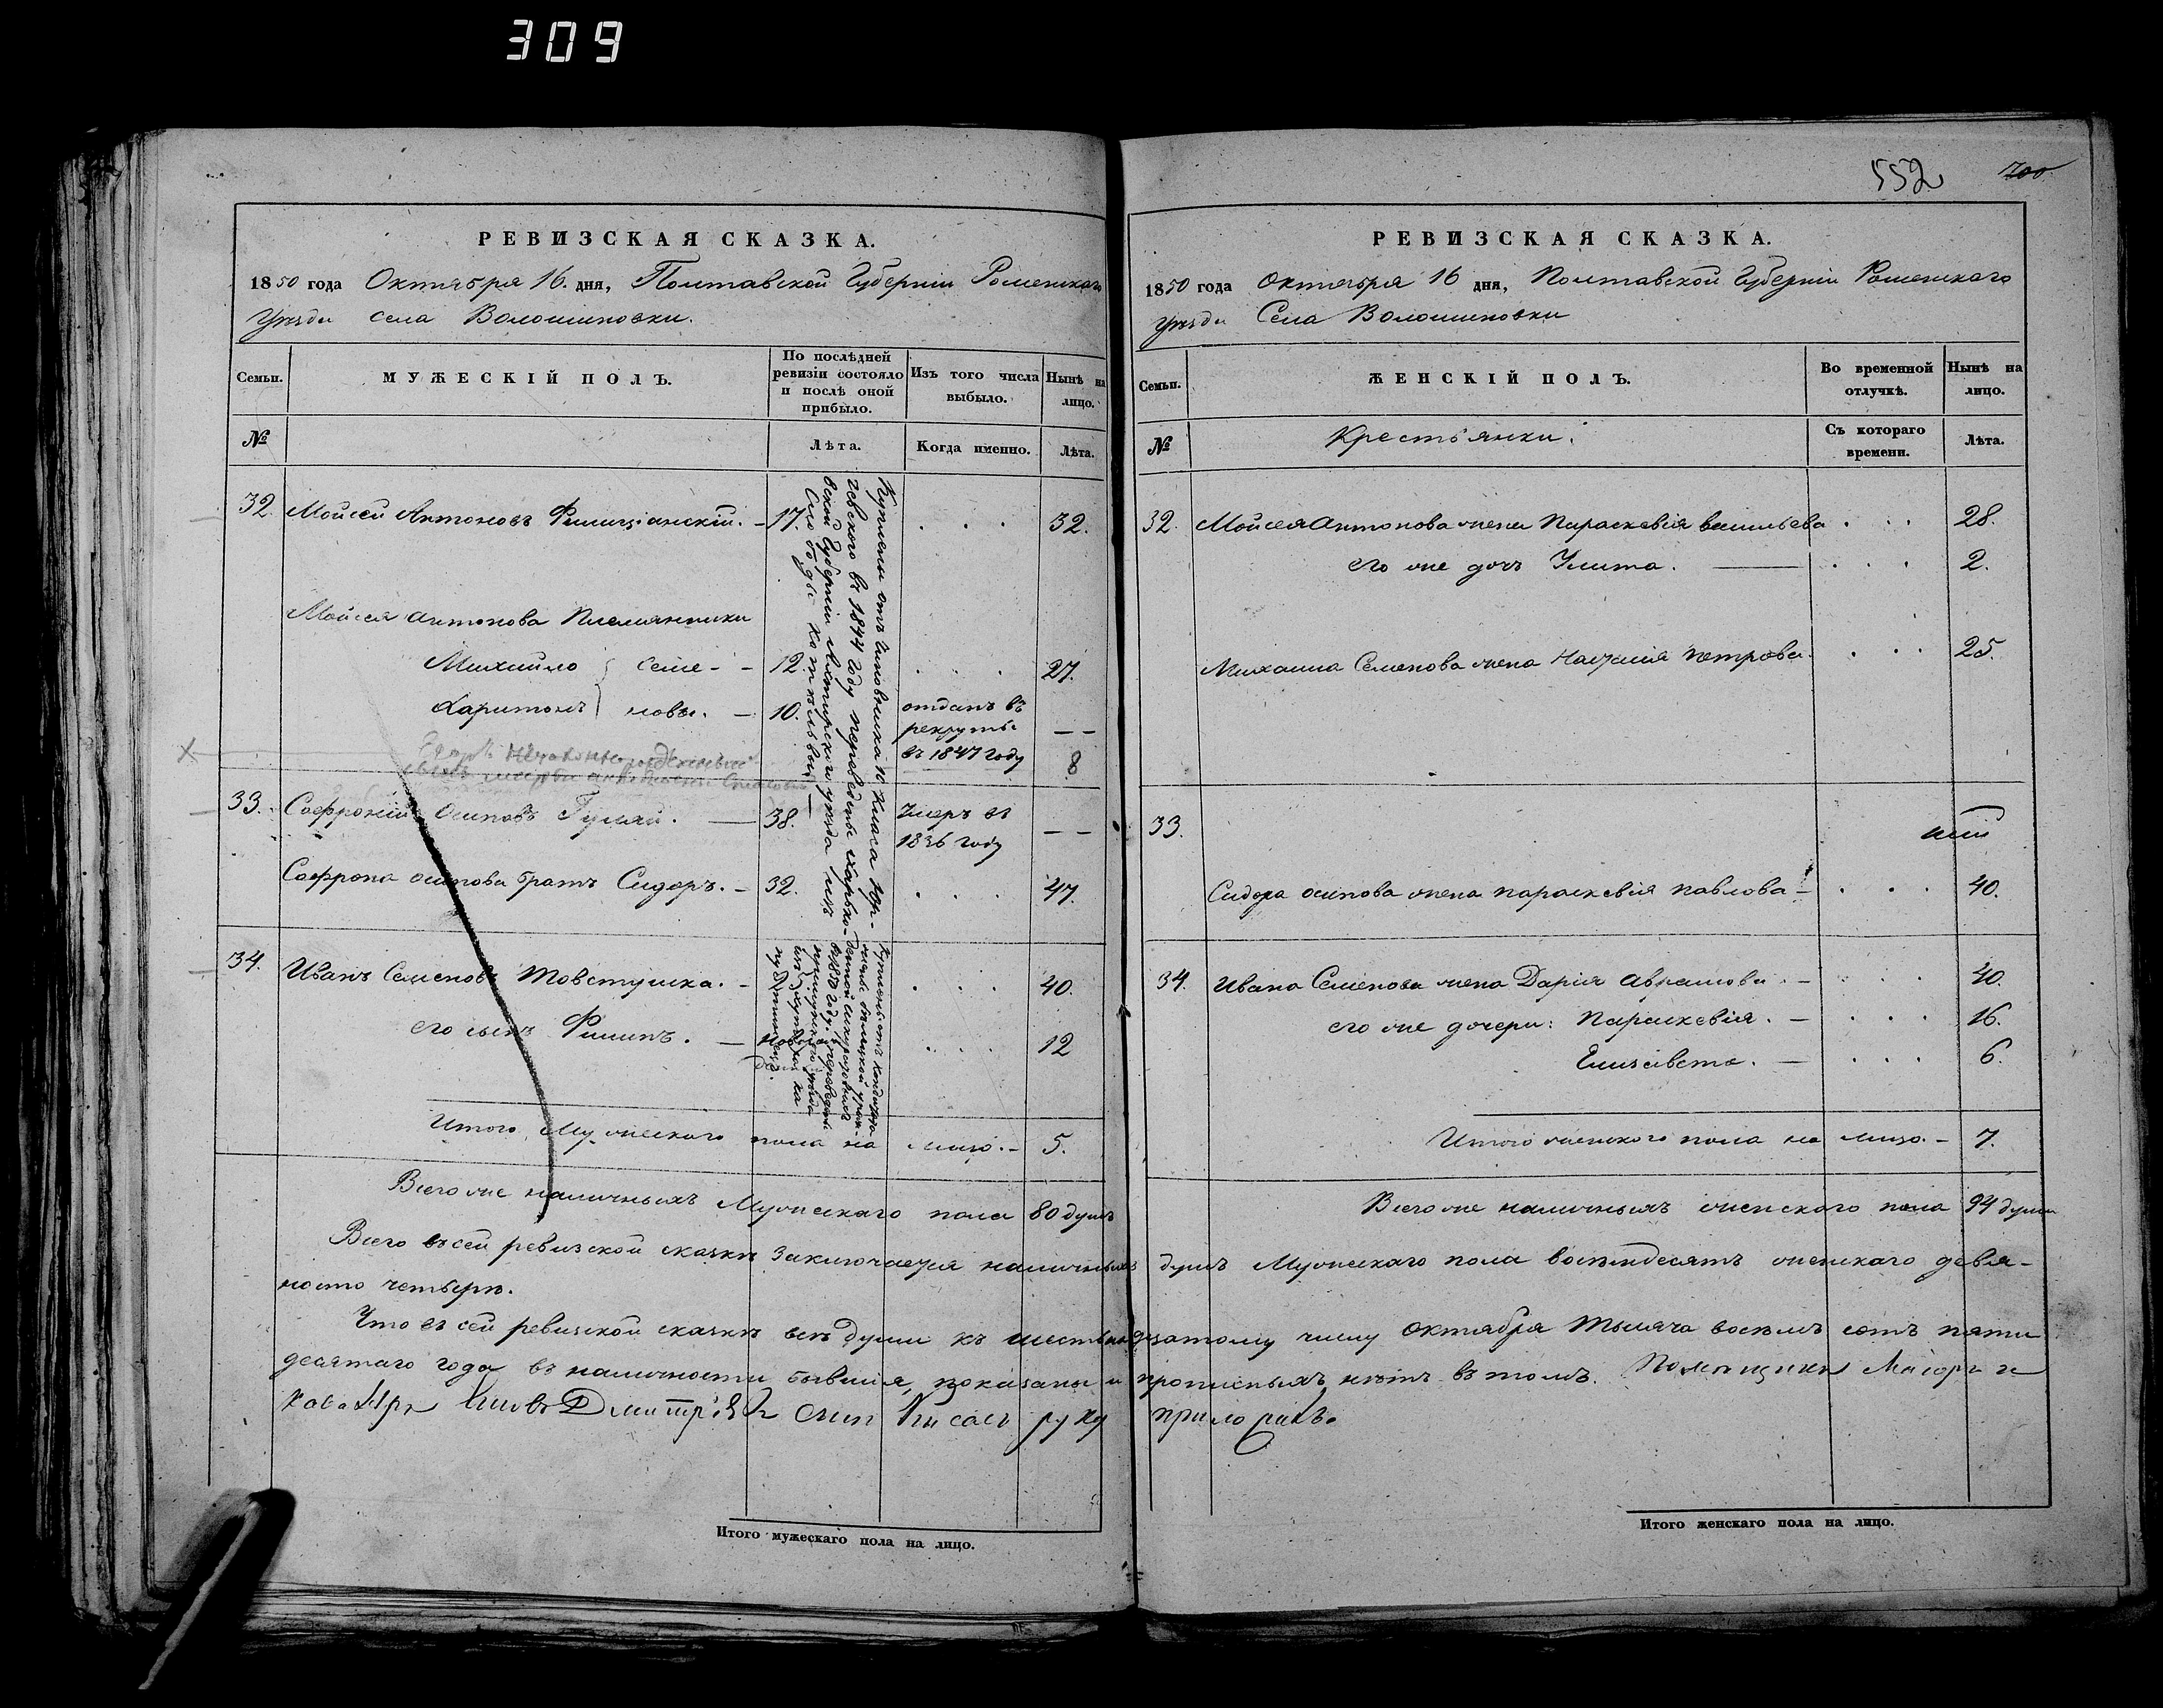 309
552
700
РЕВИЗСКАЯ СКАЗКА.
1850 года Октября 16. дня, Полтавской Губерніи Роменскаго
Уѣзда села Волошиновки.
Семьи.
МУЖЕСКІЙ ПОЛЪ.
По послѣдней ревизіи состояло и послѣ оной прибыло.
Изъ того числа выбыло.
Нынѣ на лицо.
№
Лѣта.
Когда именно.
Лѣта.
32. Мойсей Антоновъ Филиціанскій. – 17. . . . 32.
Мойсея Антонова Племянники
Михайло } Семе- – 12. . . . 27.
Харитонъ } новы. – 10. отданъ въ
рекруты – –
въ 1847 году
8
незаконнорожденный
33. Софроній Осиповъ Гуляй. – 38. Умеръ въ – –
1836 году
Софрона осипова братъ Сидоръ. – 32. . . . 47.
34. Иванъ Семеновъ Товстушка. – . . . 40.
его сынъ Филипъ. – . . . 12
Куплены отъ Чиновника 10 класа
въ 1844 году переведены Харько-
вской Губерніи Ахтирскаго уѣзда изъ
Слободы
Итого Мужескаго пола на лицо. – 5.
Всего же наличныхъ Мужескаго пола 80 душъ
РЕВИЗСКАЯ СКАЗКА.
1850 года Октября 16 дня, Полтавской Губерніи Роменскаго
Уѣзда Села Волошиновки
Семьи.
ЖЕНСКІЙ ПОЛЪ.
Во временной отлучкѣ.
Нынѣ на лицо.
№
Крестьянки.
Съ котораго времени.
Лѣта.
32. Мойсея Антонова жена Параскевія васильева . . . 28.
его же дочь Улита. – . . . 2.
Михаила Семенова жена Наталія петрова. . . . 25.
33.
Сидора осипова жена параскевія павлова – . . . 40.
34. Ивана Семенова жена Дарія Аврамова. – . . . 40.
его же дочери: Параскевія. – . . . 16.
Елисавета. – . . . 6.
Итого женскаго пола на лицо. – 7.
Всего же наличныхъ женскаго пола 94 души
Всего въ сей ревизской сказкѣ заключается наличныхъ душъ Мужескаго пола восемдесятъ женскаго девя-
носто четыре.
Что въ сей ревизской сказкѣ всѣ души къ шестнадцатому числу Октября тысяча восемъ сотъ пяти
десятаго года въ наличности бывшія, показаны и прописныхъ нѣтъ въ томъ. Помещикъ Маіоръ и
Кавалеръ Дмитріевъ сынъ руку приложилъ.
Итого мужескаго пола на лицо.
Итого женскаго пола на лицо.